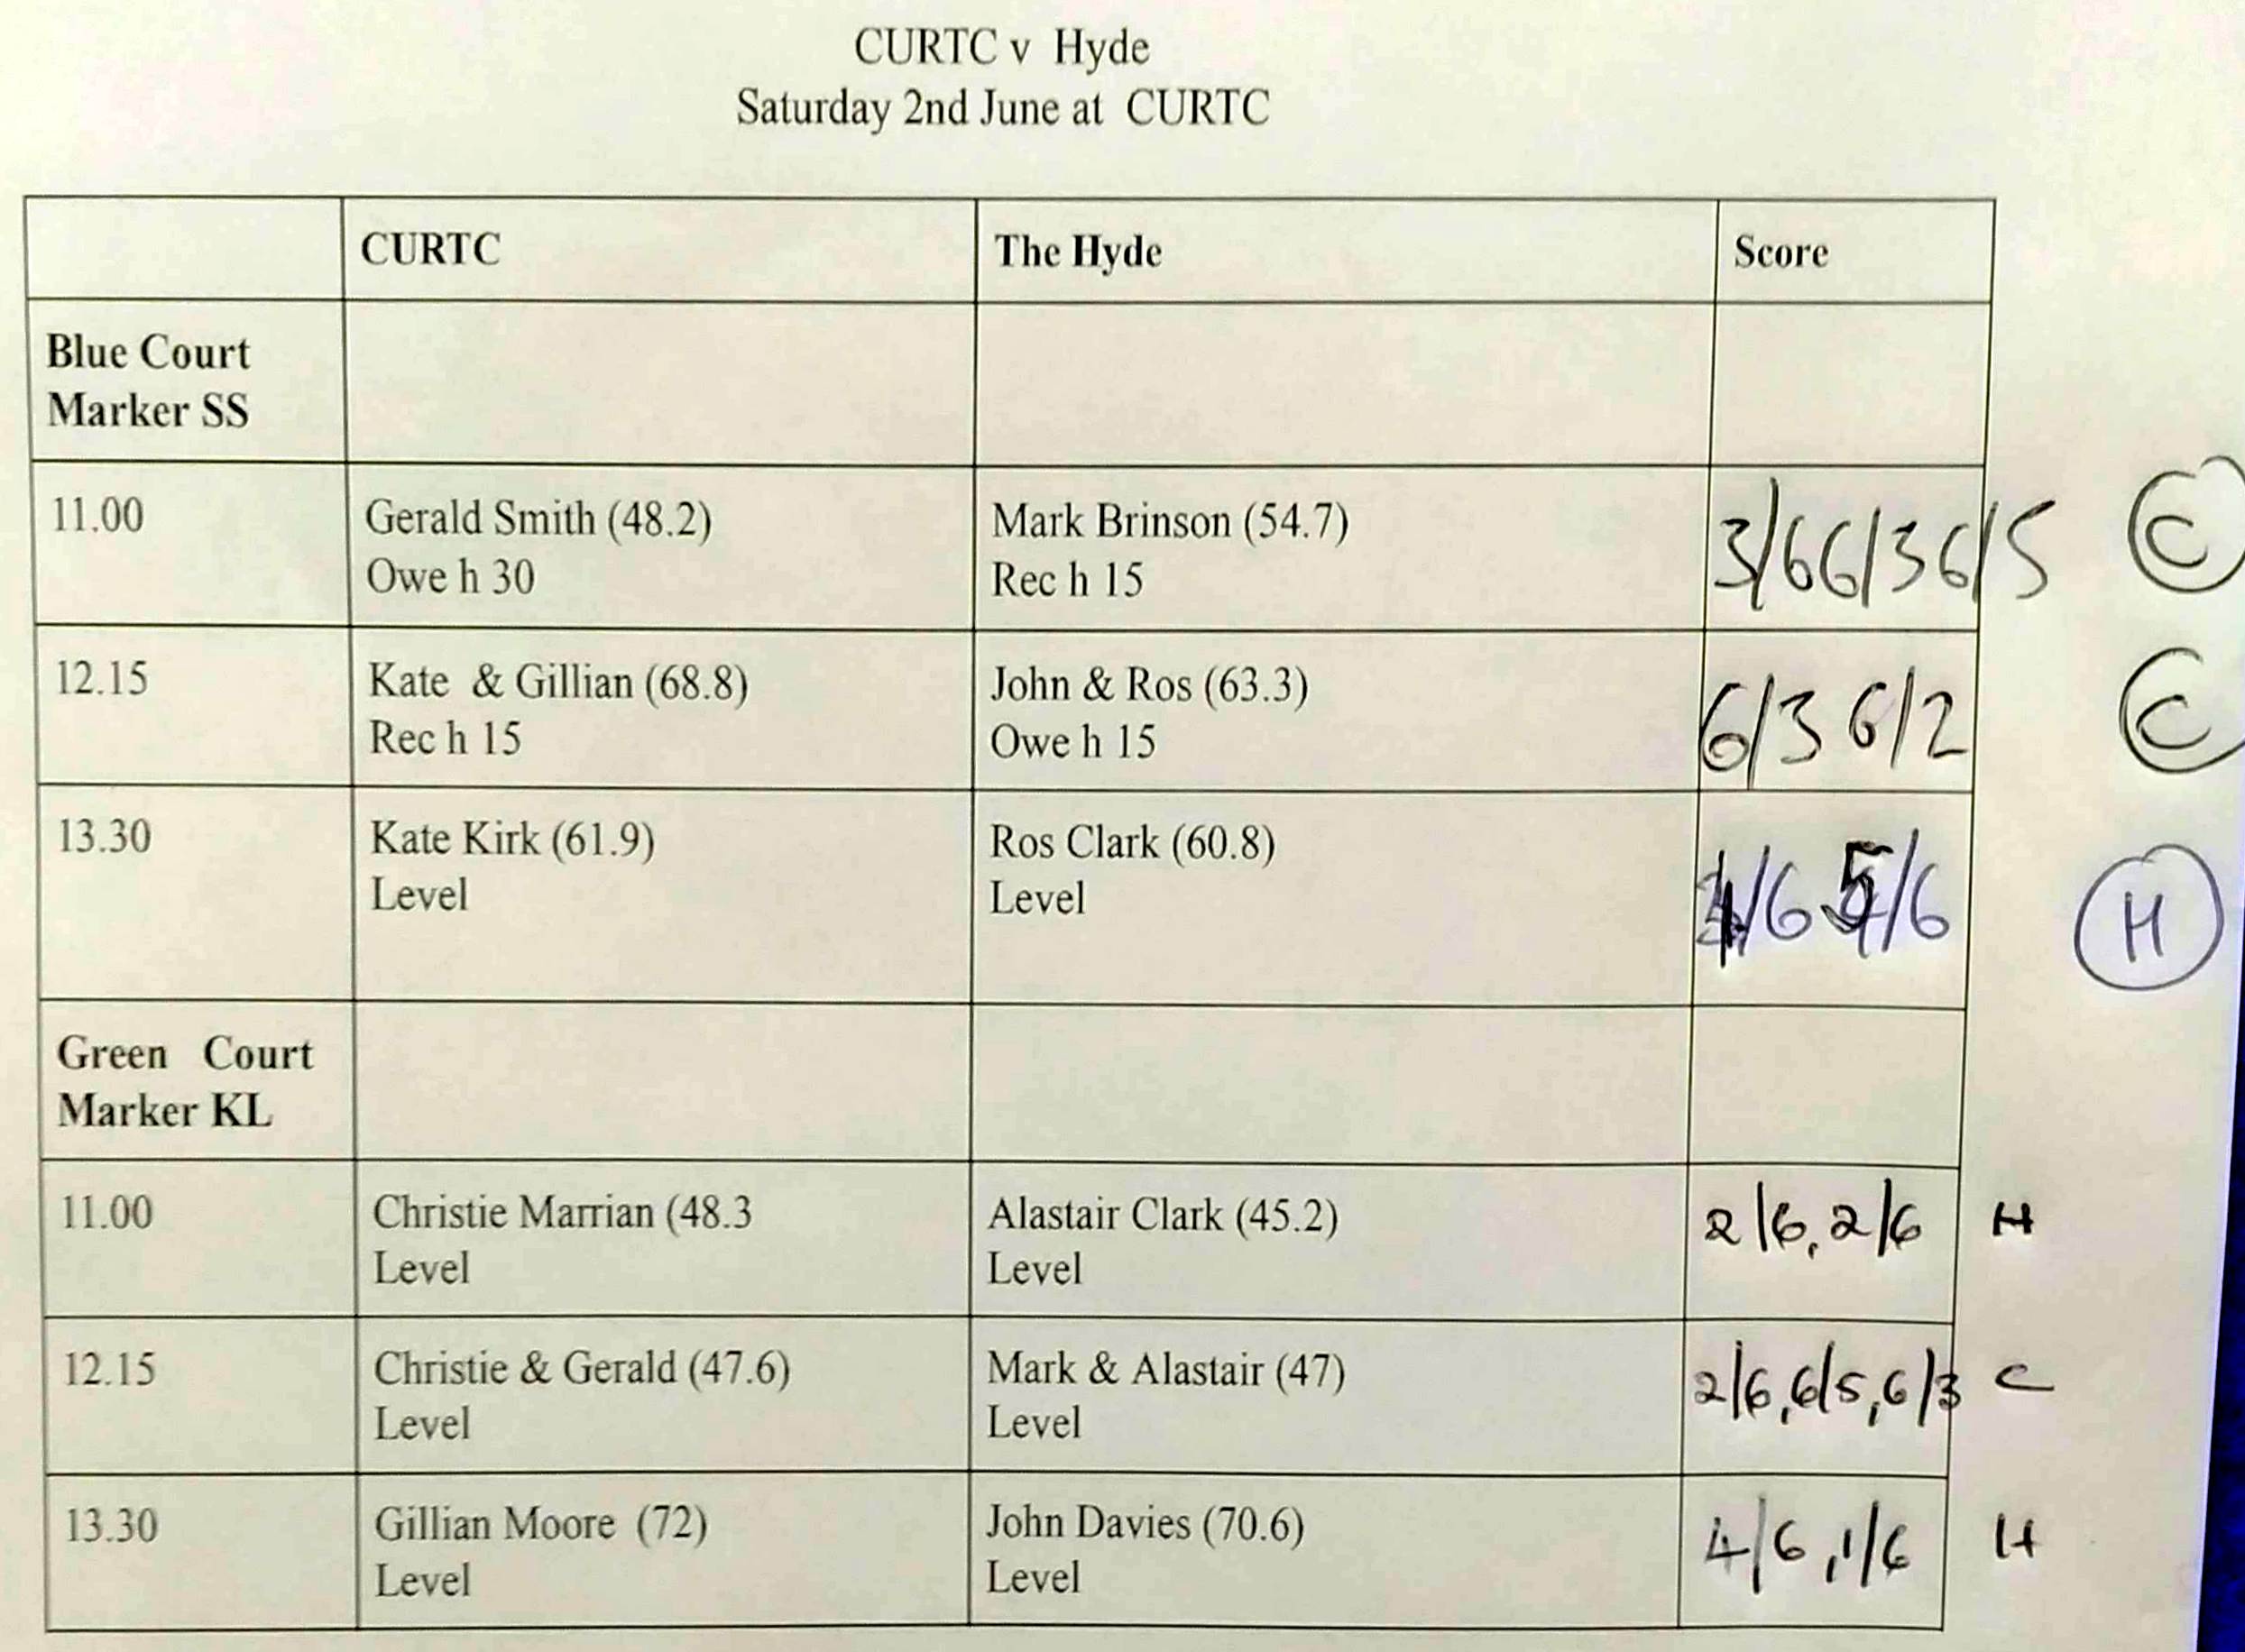 CURTC v Hyde
Saturday 2nd June at CURTC
CURTC The Hyde Score
Blue Court
Marker SS
11.00 Gerald Smith (48.2) Mark Brinson (54.7) 3/6 6/3 6/5 C
Owe h 30 Rec h 15
12.15 Kate & Gillian (68.8) John & Ros (63.3) 6/3 6/2 C
Rec h 15 Owe h 15
13.30 Kate Kirk (61.9) Ros Clark (60.8) /6 5/6 H
Level Level
Green Court
Marker KL
11.00 Christie Marrian (48.3 Alastair Clark (45.2) 2/6, 2/6 H
Level Level
12.15 Christie & Gerald (47.6) Mark & Alastair (47) 2/6, 6/5, 6/3 C
Level Level
13.30 Gillian Moore (72) John Davies (70.6) 4/6, 1/6 H
Level Level